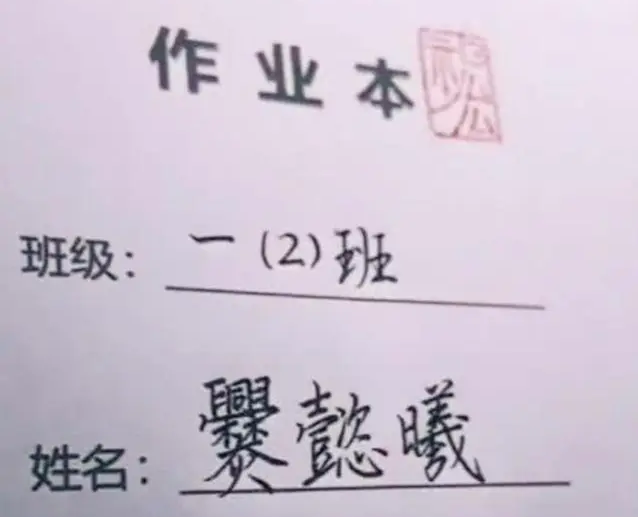 作业本
班级: 一(2)班
姓名: 爨懿曦